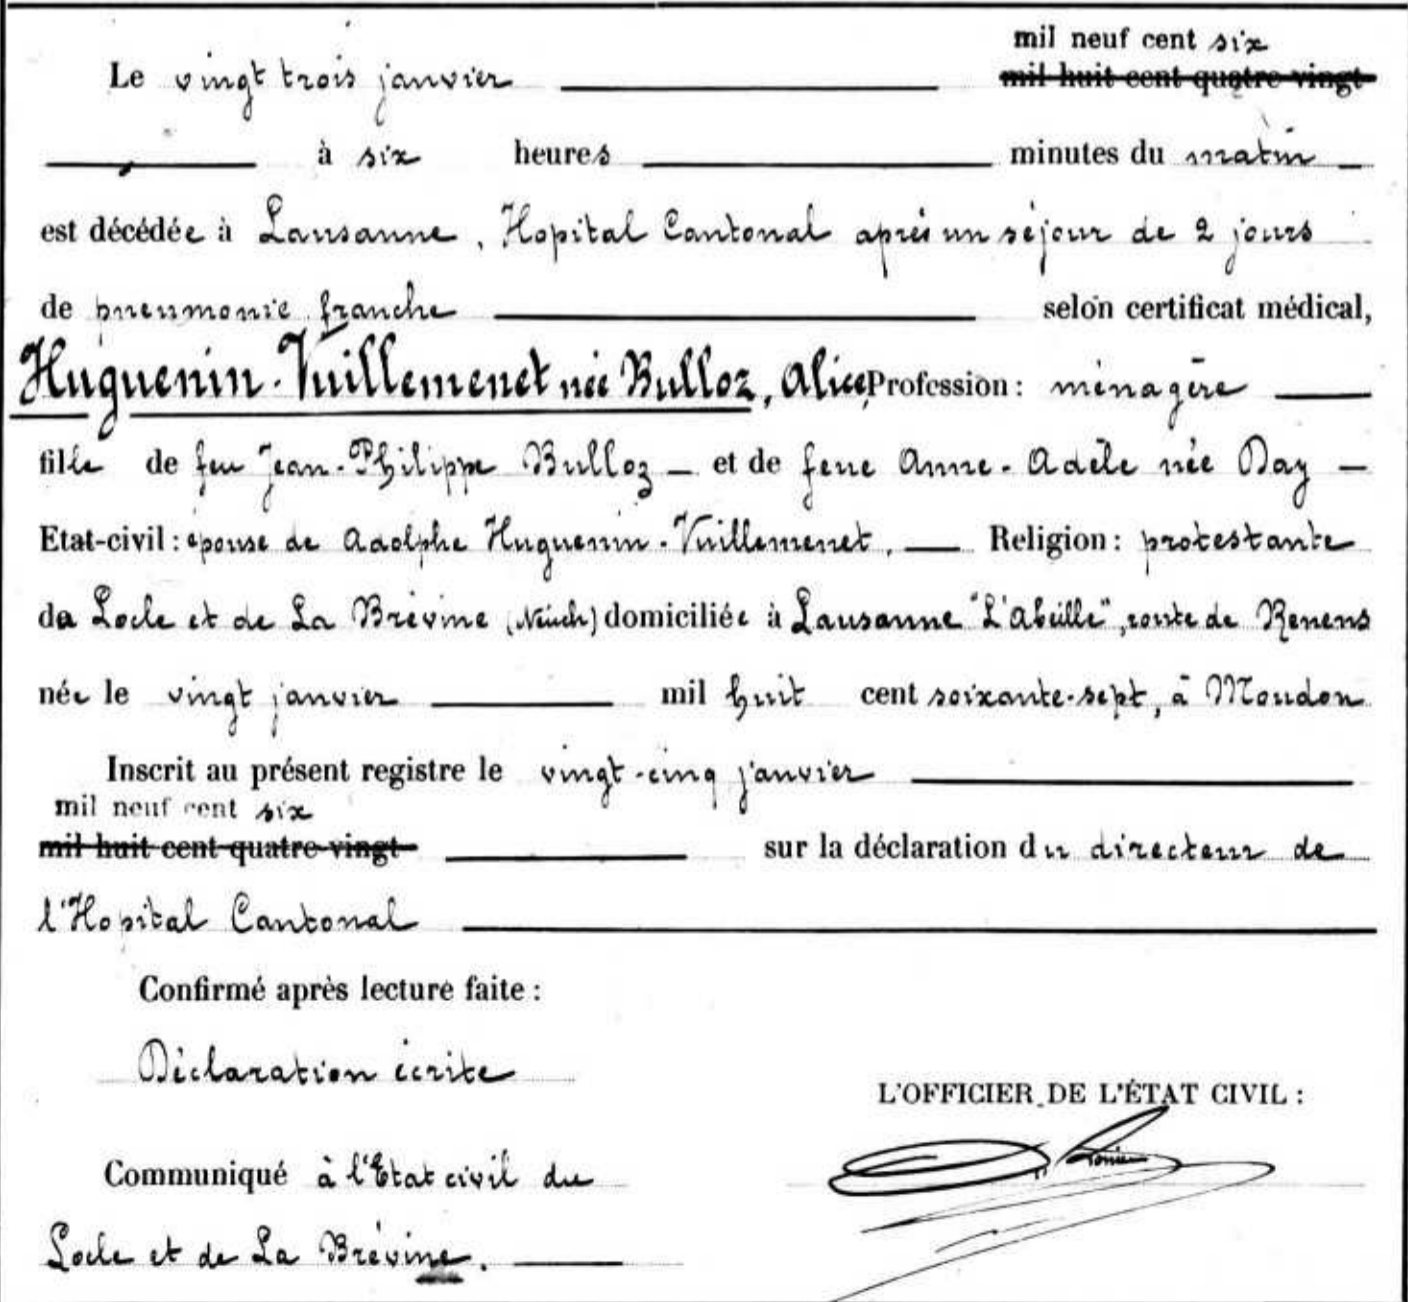 mil neuf cent six
Le vingt trois janvier mil huit cent quatre-vingt
à six heures minutes du matin
est décédée à Lausanne, Hopital Cantonal après un séjour de 2 jours
de pneumonie franche selon certificat médical,
Huguenin-Vuillemenet née Bulloz, Alice, Profession: ménagère
fille de feu Jean-Philippe Bulloz — et de feue Anne-Adèle née Day —
Etat-civil: épouse de Adolphe Huguenin-Vuillemenet, — Religion: protestante
du Locle et de La Brévine (Neuch) domiciliée à Lausanne "L'Abeille", route de Renens
née le vingt janvier mil huit cent soixante-sept, à Moudon
Inscrit au présent registre le vingt-cinq janvier
mil neuf cent six
mil huit cent quatre-vingt sur la déclaration du directeur de
l'Hopital Cantonal
Confirmé après lecture faite:
Déclaration écrite
L'OFFICIER DE L'ÉTAT CIVIL:
Communiqué à l'Etat civil du
Locle et de La Brévine.